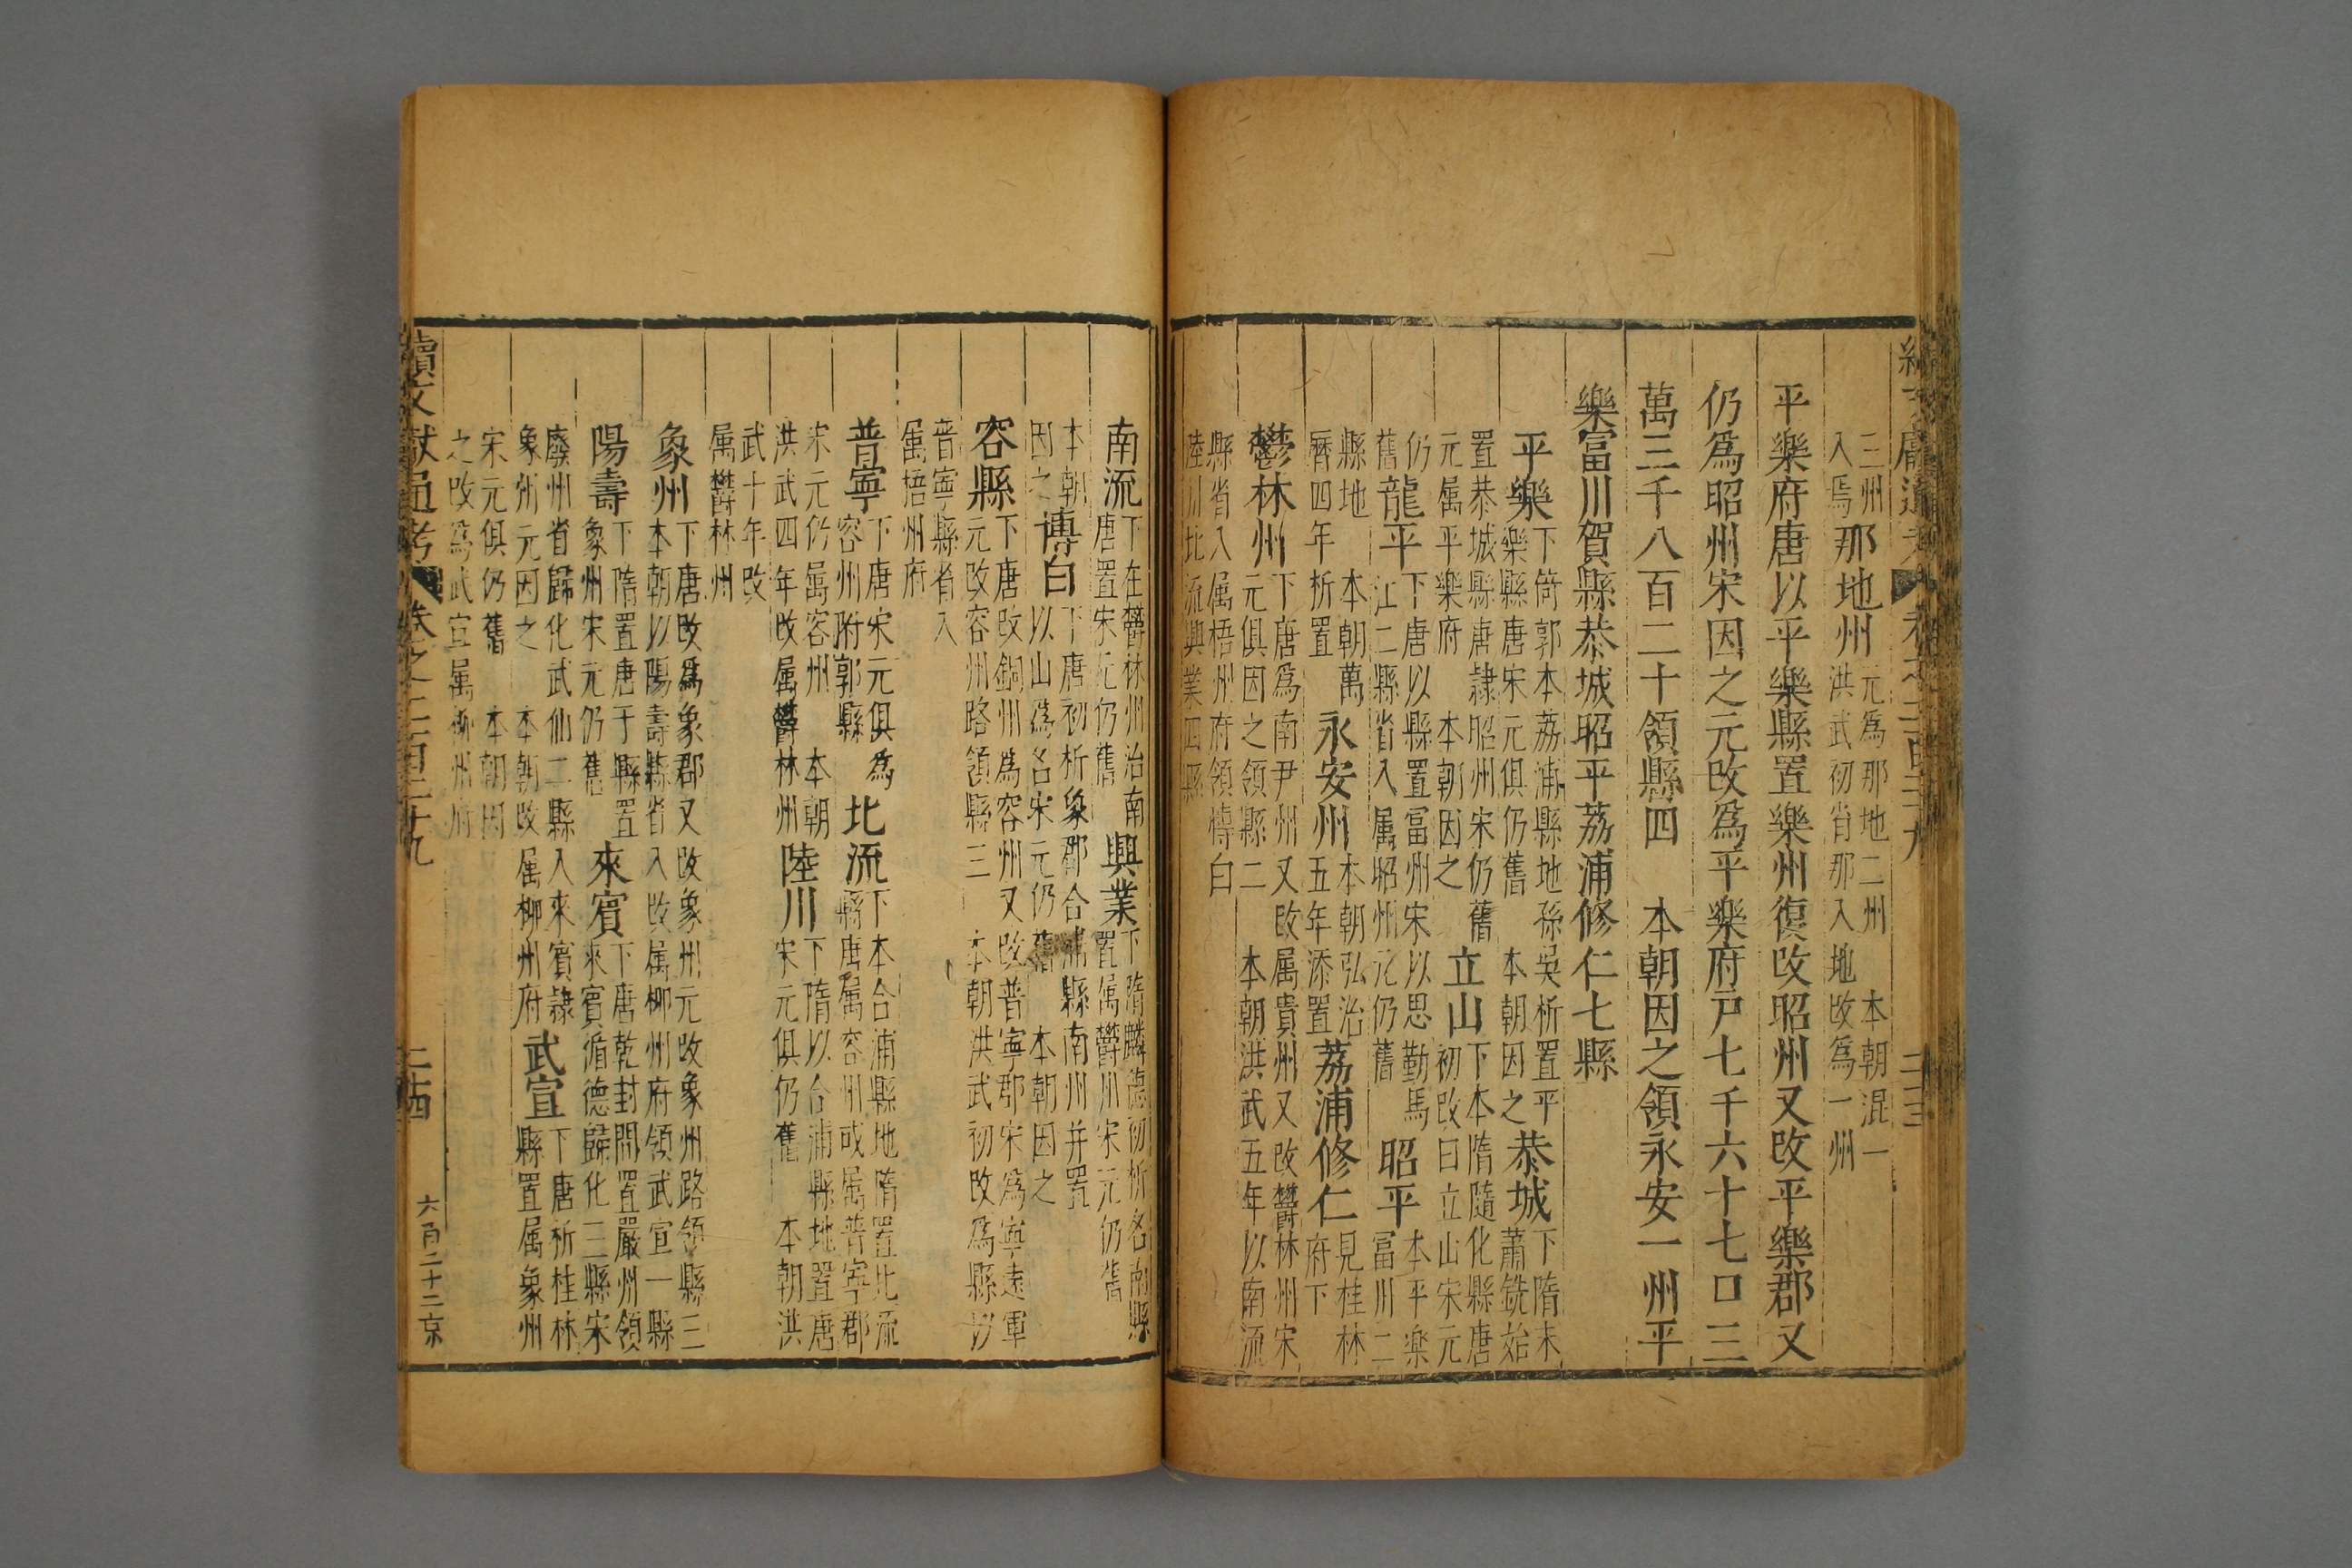 三州　本朝混一
入焉那地州元為那地二州
洪武初省那入地改為一州
平樂府唐以平樂縣置樂州復改昭州又改平樂郡又
仍為昭州宋因之元改為平樂府戸七千六十七口三
萬三千八百二十領縣四　本朝因之領永安一州平
樂富川賀縣恭城昭平荔浦修仁七縣
平樂下倚郭本荔浦縣地孫吳析置平
樂縣唐宋元俱仍舊　本朝因之恭城下隋末
蕭銑始
置恭城縣唐隸昭州宋仍舊
元属平樂府　本朝因之立山下本隋隨化縣唐
初改曰立山宋元
仍
舊龍平下唐以縣置富州宋以思勤馬
江二縣省入属昭州元仍舊昭平本平樂
富川二
縣地　本朝萬
曆四年析置永安州本朝弘治
五年添置荔浦修仁見桂林
府下
鬱林州下唐為南尹州又改属貴州又改鬱林州宋
元俱因之領縣二　本朝洪武五年以南流
縣省入属梧州府領博白
陸川北流興業四縣
南流下在鬱林州治南
唐置宋元仍舊興業下隋麟德初析名南縣
置属鬱州宋元仍舊
本朝
因之博白下唐初析象郡合浦縣南州并置
以山為名宋元仍舊　本朝因之
容縣下唐改銅州為容州又改普寧郡宋為寧遠軍
元改容州路領縣三　本朝洪武初改為縣以
普寧縣省入
属梧州府
普寧下唐宋元俱為
容州附郭縣北流下本合浦縣地隋置北流
縣唐属容州或属普寧郡
宋元仍属容州　本朝
洪武四年改属鬱林州陸川下隋以合浦縣地置唐
宋元俱仍舊　本朝洪
武十年改
属鬱林州
象州下唐改為象郡又改象州元改象州路領縣三
本朝以陽壽縣省入改属柳州府領武宣一縣
陽壽下隋置唐于縣置
象州宋元仍舊來賓下唐乾封間置嚴州領
來賓循德歸化三縣宋
廢州省歸化武仙二縣入來賓隸
象州元因之　本朝改属柳州府武宣下唐析桂林
縣置属象州
宋元俱仍舊　本朝因
之改為武宣属柳州府
續文獻通考　卷之二百二十九　二十四　六百二十二京